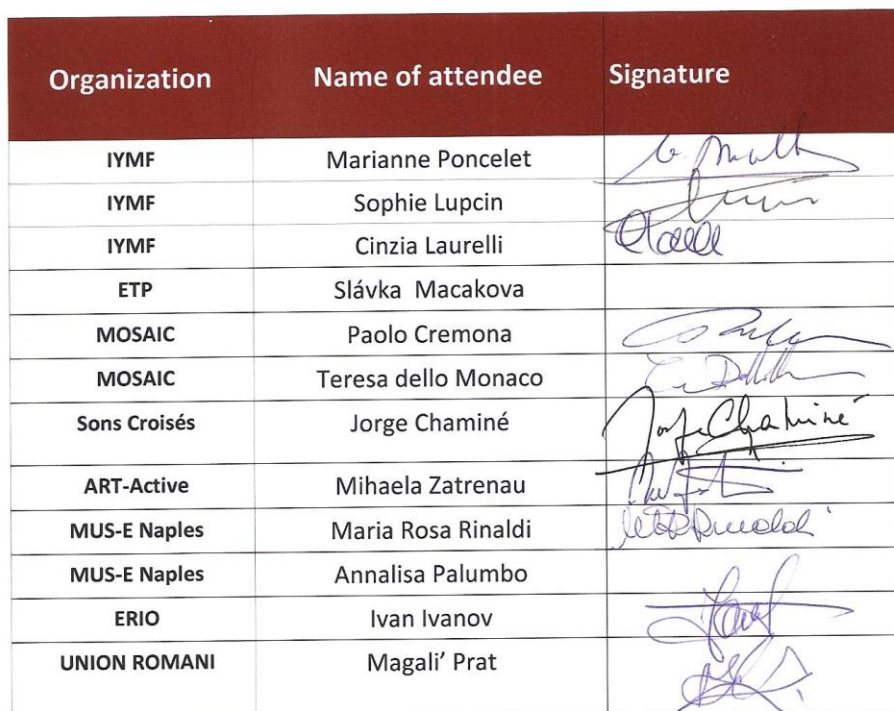 Organization Name of attendee Signature
IYMF Marianne Poncelet
IYMF Sophie Lupcin
IYMF Cinzia Laurelli
ETP Slávka Macakova
MOSAIC Paolo Cremona
MOSAIC Teresa dello Monaco
Sons Croisés Jorge Chaminé Jorge Chaminé
ART-Active Mihaela Zatrenau
MUS-E Naples Maria Rosa Rinaldi
MUS-E Naples Annalisa Palumbo
ERIO Ivan Ivanov
UNION ROMANI Magali’ Prat